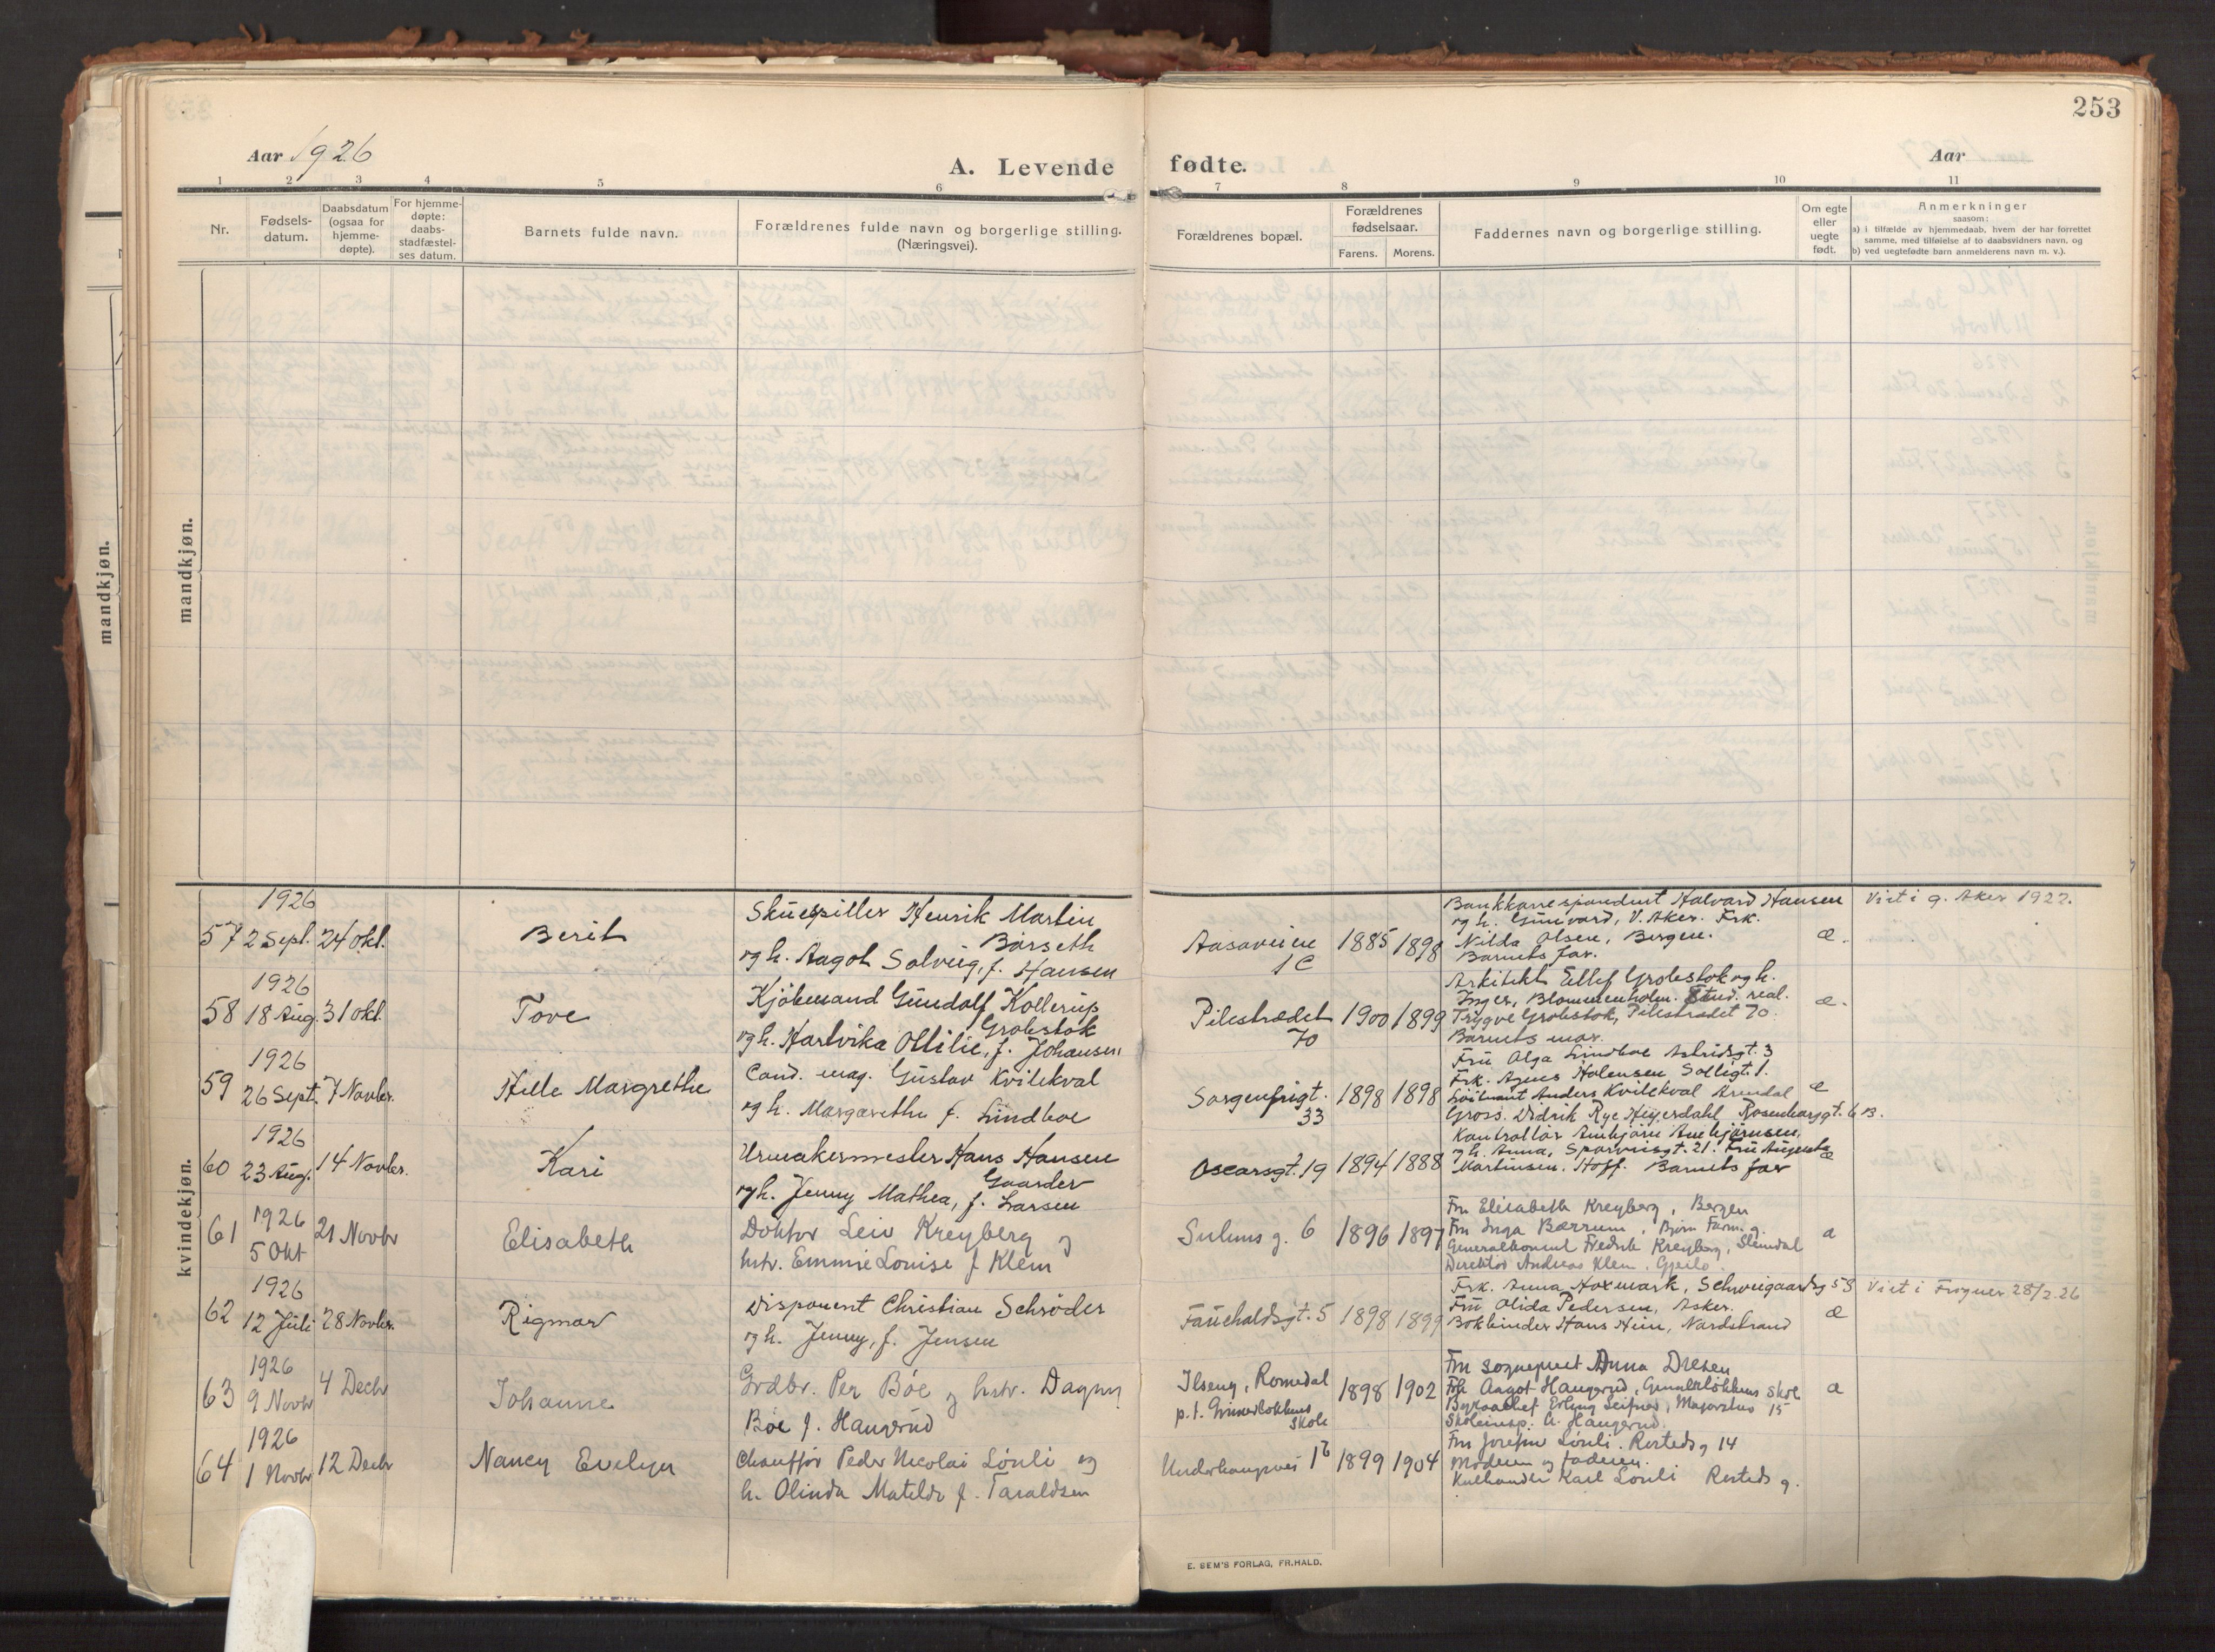 253
Aar 1926
A. Levende fødte.
Aar
1 2 3 4 5 6 7 8 9 10 11
Nr.
Fødsels-
datum.
Daabsdatum
(ogsaa for
hjemme-
døpte).
For hjemme-
døpte:
daabs-
stadfæstel-
ses datum.
Barnets fulde navn.
Forældrenes fulde navn og borgerlige stilling.
(Næringsvei).
Forældrenes bopæl.
Forældrenes
fødselsaar.
Farens. Morens.
Faddernes navn og borgerlige stilling.
Om egte
eller
uegte
født.
Anmerkninger
saasom:
a) i tilfælde av hjemmedaab, hvem der har forrettet
samme, med tilføielse af to daabsvidners navn, og
b) ved uegtefødte barn anmelderens navn m. v.).
mandkjøn.
mandkjøn.
kvindekjøn.
1926
57 2 Sept. 24 Okt.
Berit
Skuespiller Henrik Martin
Børseth
og h. Aagot Solveig, f. Hansen
Aasaveien
1C
1885 1898
Bankkorrespondent Halvard Hansen
og h. Gunvard, V. Aker. Frk.
Nilda Olsen, Bergen.
Barnets far.
æ.
Viet i g. Aker 1922.
1926
58 18 Aug. 31 Okt.
Tove
Kjøbmand Gundolf Kollerup
Grobstok
og h. Hartvika Ottilie, f. Johansen
Pilestrædet
70
1900 1899
Arkitekt Ellef Grobstok og h.
Inger, Blommenholm. Stud. real.
Trygve Grobstok, Pilestrædet 70.
Barnets mor.
æ.
1926
59 26 Sept. 7 Novbr.
Helle Margrethe
Cand. mag. Gustav Kvilekval
og h. Margarethe f. Lindboe
Sorgenfrigt.
33
1898 1898
Fru Olga Lindboe Astridsgt. 3
Frk. Agnes Halensen Solligt. 1.
Løitnant Anders Kvilekval Arendal
Gross. Didrik Rye Heyerdahl Rosenborggt. 6 B.
æ
1926
60 23 Aug. 14 Novbr.
Kari
Urmakermester Hans Hansen
Gaarder
og h. Jenny Mathea, f. Larsen
Oscarsgt. 19
1894 1888
Kontrollør Arnbjørn Arnbjørnsen,
og h. Anna, Sporveisgt. 21. Fru Augusta
Martinsen. Hoff. Barnets far
æ
1926
61 5 Okt 21 Novbr
Elisabeth
Doktor Leiv Kreyberg og
hstr. Emmie Louise f Klem
Suhms g. 6
1896 1897
Fru Elisabeth Kreyberg, Bergen
Fru Inga Bærrum, Bjørn Farm. g.
Generalkonsul Fredrik Kreyberg, Slemdal
Direktør Andreas Klem, Gjeilo.
æ
1926
62 12 Juli 28 Novbr.
Rigmor
Disponent Christian Schrøder
og h. Jenny, f. Jensen
Fauchaldsgt. 5
1898 1899
Frk. Anna Hoxmark, Schweigaardsg 53
Fru Olida Pedersen, Asker.
Bokbinder Hans Heim, Nordstrand
æ
Viet i Frogner 28/2. 26
1926
63 9 Novbr 4 Decbr
Johanne
Grdbr. Per Böe og hstr. Dagny
Böe f. Haugerud
Ilseng, Romedal
p.t. Grünerløkkens
Skole
1898 1902
Fru sogneprest Anna Dresen
Frk Aagot Haugerud, Grunerløkkens Skole
Erling Seifnes, Majorstus 15
Skoleinsp. A. Haugerud.
æ
1926
64 1 Novbr 12 Decbr
Nancy Evelyn
Chauffør Peder Nicolai Lönli og
h. Olinda Matilde f. Taraldsen
Underhaugsvei 1b
1899 1904
Fru Josefin Lönli. Rosteds g 14
Moderen og faderen.
Kulhandler Karl Lönli Rosteds g.
E. SEM'S FORLAG, FR.HALD.